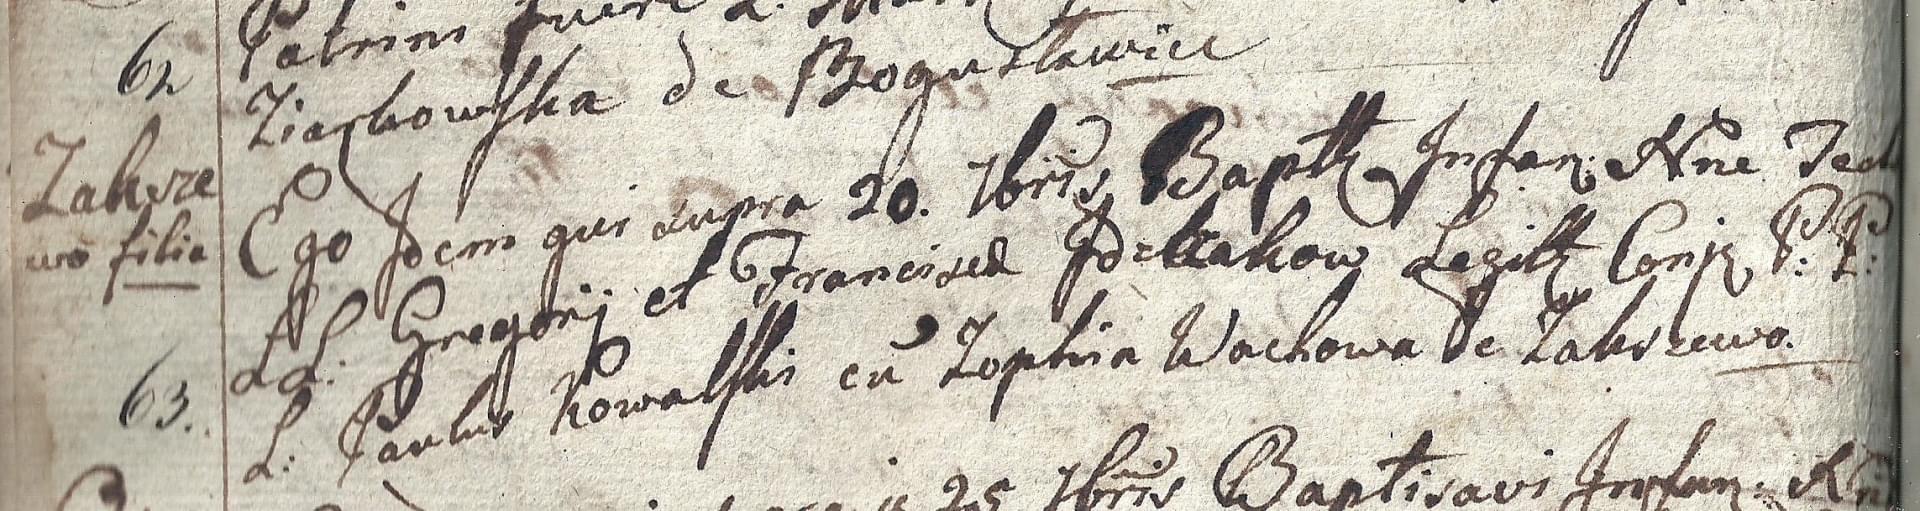 Patrini fuere L:
62
Ziachowska de Bogusławice
Zaksze
wo filia
Ego Idem qui supra 20. 7bris Baptz Infan: Nne
LL: Gregorij et Francisca Legitt Conj P: P:
63.
L: Paulus Kowalski cū Zophia Wachowa de Zakszewo.
25 7bris Baptisavi Infan: